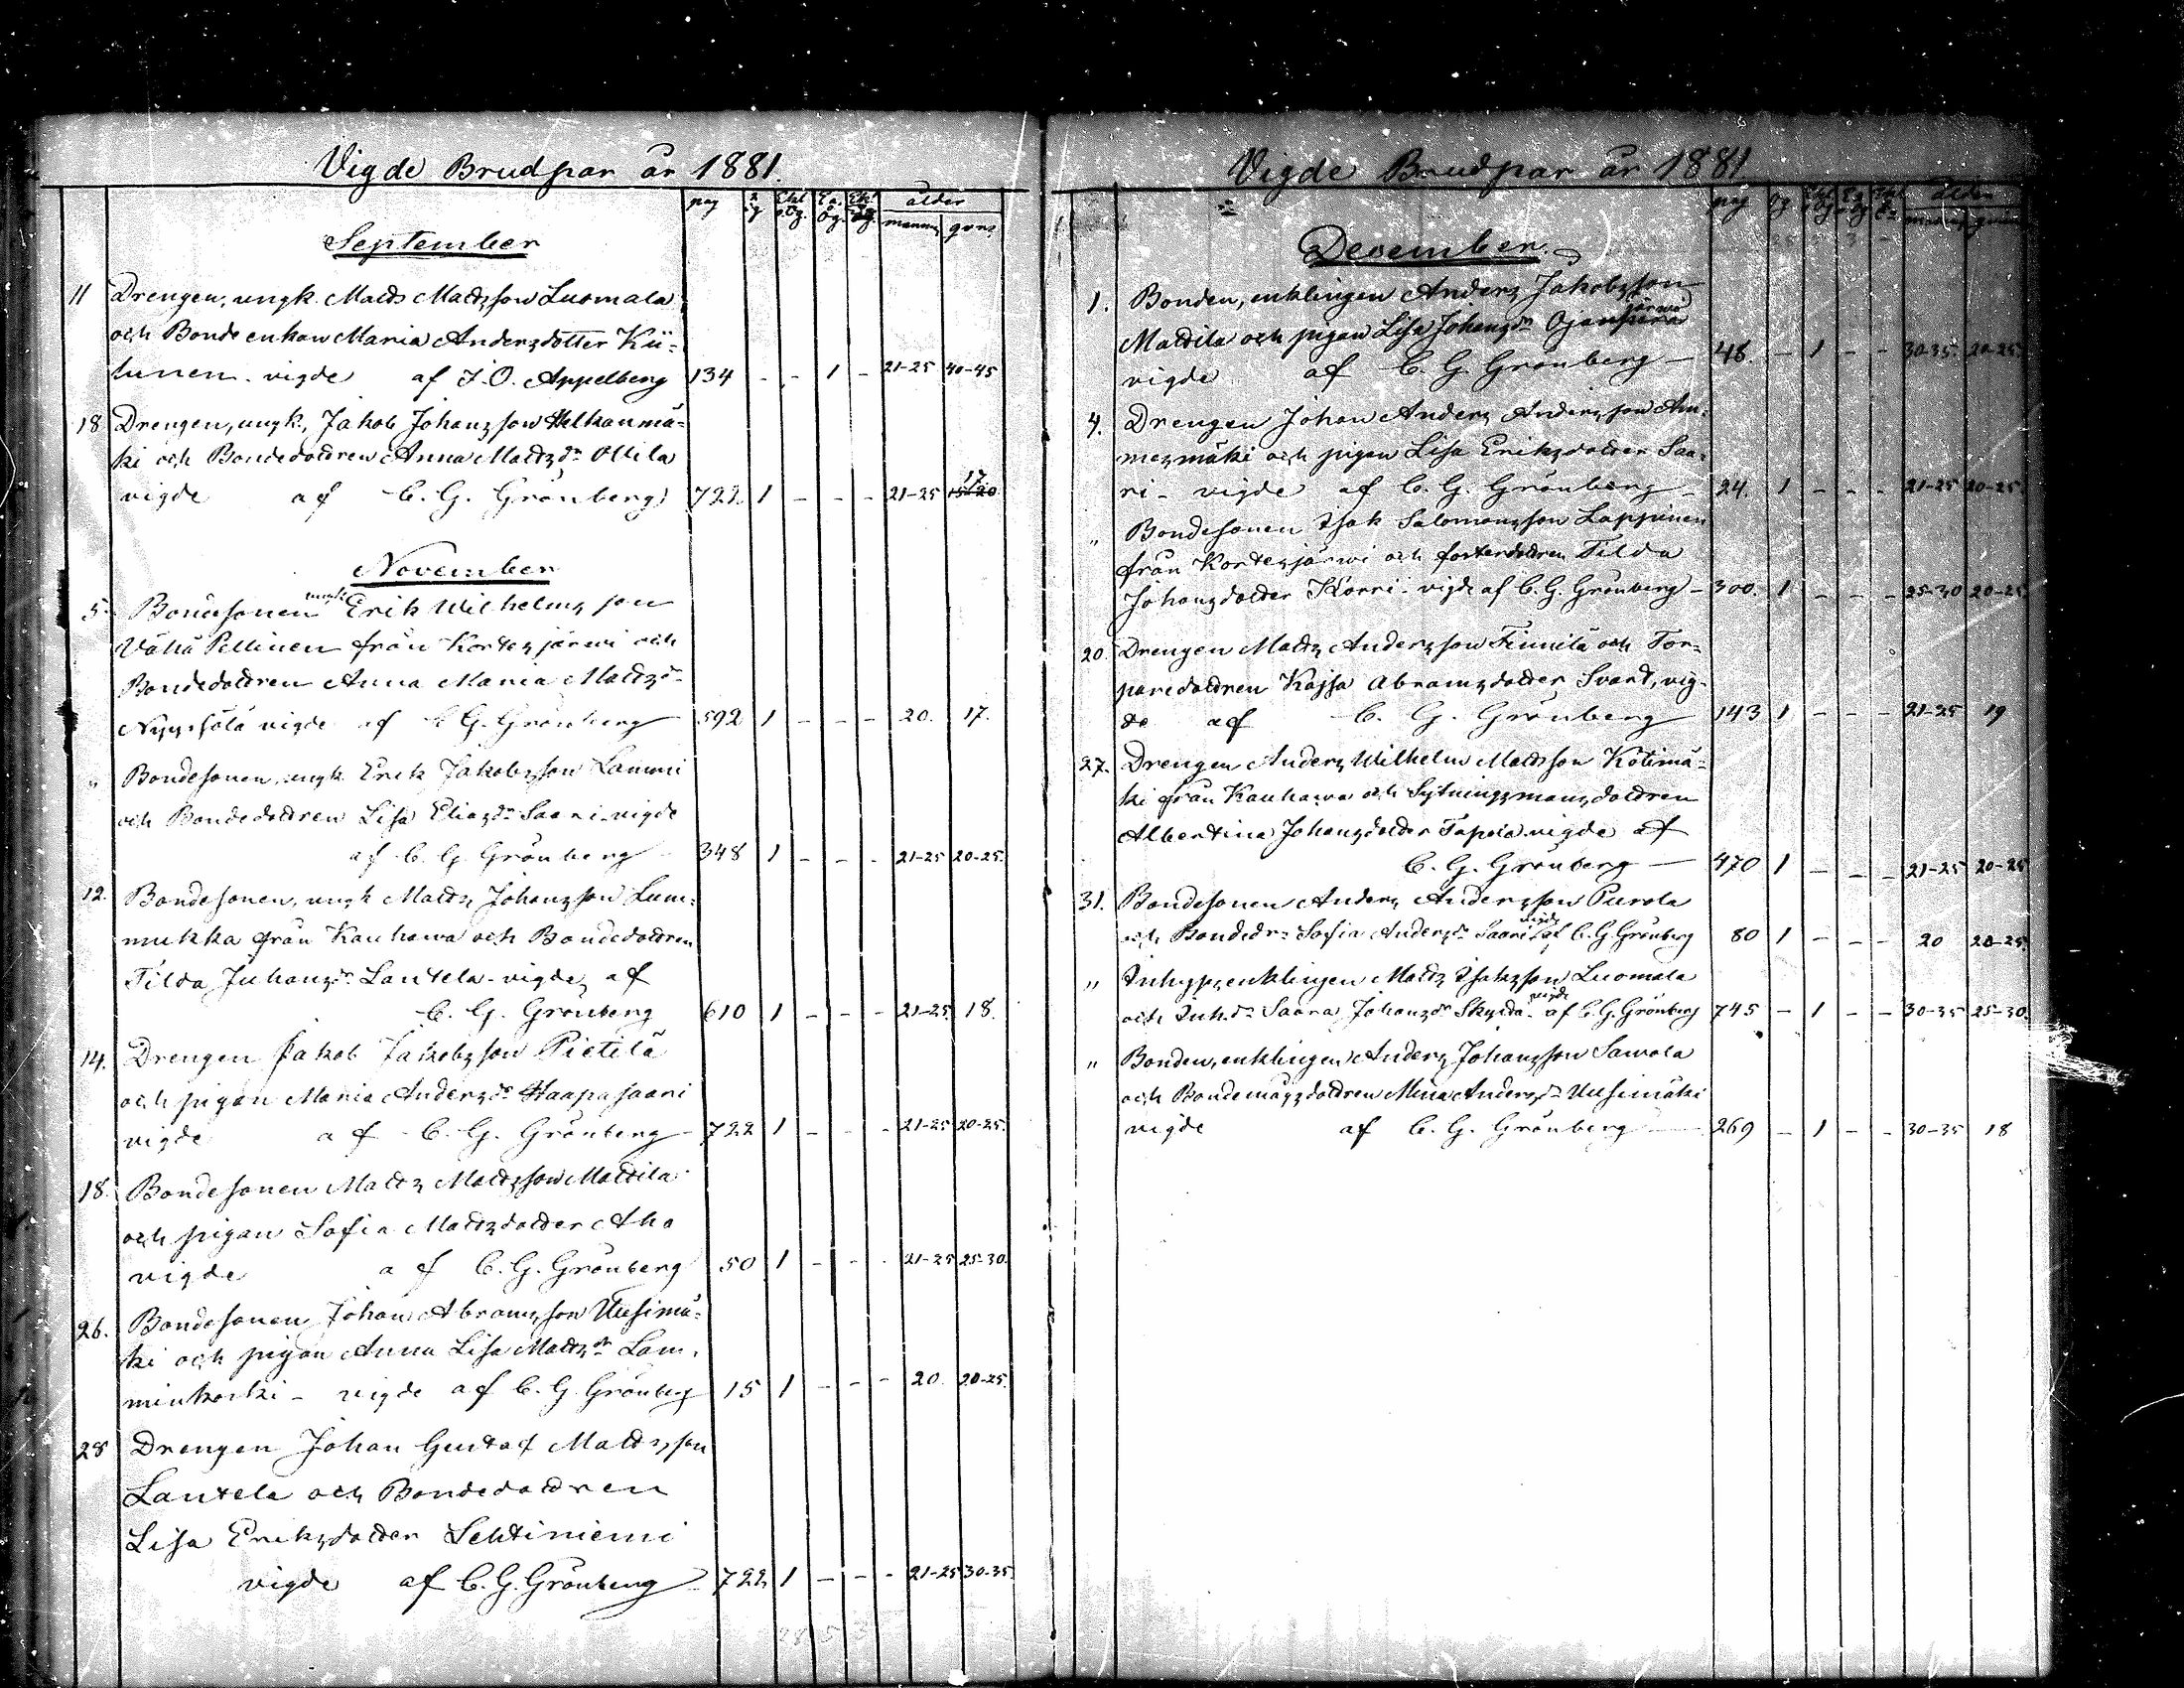 Vigde Brudpar år 1881.
pag
ålder
mannen qvin.
September
11 Drengen, ungk. Matts Mattsson Luomala
och Bonde enkan Maria Andersdotter Kii-
hunen. vigde af J. O. Appelberg 134 - - 1 - 21-25 40-45
18 Drengen, ungk., Jakob Johansson Helkanmä-
ki och Bondedottren Anna Mattsdr Ollila
vigde af C. G. Grönberg 722. 1 - - - 21-25 17
November
5. Bondesonen ungk. Erik Wilhelmsson
Vähä Pellinen från Kortesjärwi och
Bondedottren Anna Maria Mattsdr
vigde af C. G. Grönberg 592 1 - - - 20. 17.
" Bondesonen, ungk. Erik Jakobsson Lammi
och Bondedottren Lisa Eliasdr Saari. vigde
af C. G. Grönberg 348 1 - - - 21-25 20-25.
12. Bondesonen, ungk Matts Johansson Lum-
mukka från Kauhawa och Bondedottren
Tilda Juhansdr Lantela. vigde af
C. G. Grönberg 610 1 - - - 21-25. 18.
14. Drengen Jakob Jakobsson Pietilä
och pigan Maria Andersdr Haapasaari
vigde af C. G. Grönberg 722 1 - - - 21-25 20-25.
18. Bondesonen Matts Mattsson Mattila
och pigan Sofia Mattsdotter Aho
vigde af C. G. Grönberg 50 1 - - - 21-25 25-30.
26. Bondesonen Johan Abramsson Uusimä-
ki och pigan Anna Lisa Mattsdr Lam-
minkoski - vigde af C. G. Grönberg 15 1 - - - 20. 20-25.
28 Drengen Johan Gustaf Mattsson
Lantela och Bondedottren
Lisa Eriksdotter Lehtiniemi
vigde af C. G. Grönberg 722 1 - - - 21-25 30-35.
Vigde Brudpar år 1881
pag
ålder
December.
1. Bonden, enklingen Anders Jakobsson
järwi
Mattila och pigan Lisa Johansdr Ojan
vigde af C. G. Grönberg - 48. - 1 - - 30-35. 20-25
4. Drengen Johan Anders Andersson Am-
mesmäki och pigan Lisa Eriksdotter Saa-
ri - vigde af C. G. Grönberg - 24. 1 - - - 21-25 20-25.
" Bondesonen Isak Salomonsson Lappinen
från Kortesjärwi och fosterdottren Tilda
Johansdotter Korri - vigde af C. G. Grönberg - 300. 1 - - - 25-30 20-25
20. Drengen Matts Andersson Finnilä och Tor-
paredottren Kajsa Abramsdotter Svart, vig-
de af C. G. Grönberg 143 1 - - - 21-25 19
27. Drengen Anders Wilhelm Mattsson Kotimä-
ki från Kauhawa och Sytningsmansdottren
Albertina Johansdotter Tapola vigde af
C. G. Grönberg - 470 1 - - - 21-25 20-25
31. Bondesonen Anders Andersson Purola
och Bondedr Sofia Andersdr Saari vigde af C. G. Grönberg 80 1 - - - 20 20-25
" Inhys, enklingen Matts Isaksson Luomala
och Inh.dr Saara Johansdr Skytta - vigde af C. G. Grönberg 745 - 1 - - 30-35 25-30.
" Bonden, enklingen Anders Johansson Sawola
och Bondemågsdottren Mina Andersdr Uusimäki
vigde af C. G. Grönberg - 269 - 1 - - 30-35 18